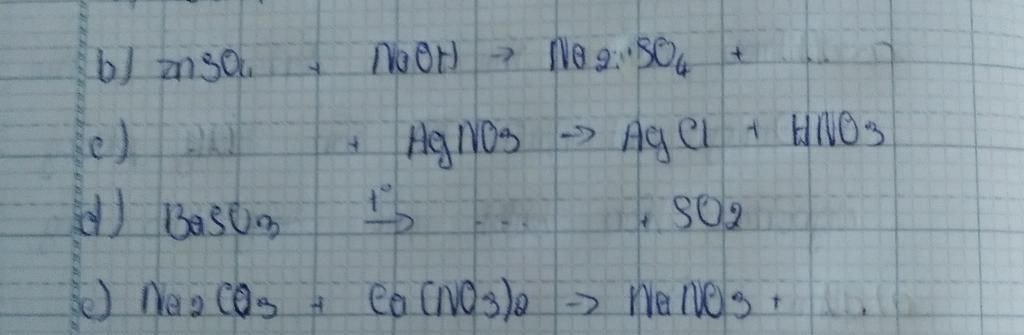 b) ZnSO4 + NaOH → Na2SO4 + ...
c) ... + AgNO3 → AgCl + HNO3
d) BaSO3 t° → ... + SO2
e) Na2CO3 + Ca(NO3)2 → NaNO3 + ...